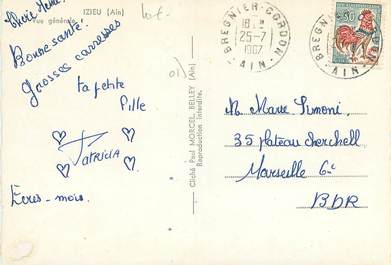 IZIEU (Ain)
Vue générale.
Bonne santé.
Grosses caresses
ta petite
fille
Patricia
Écris-mois.
Cliché Paul MORCEL, BELLEY (Ain)
Reproduction interdite.
BREGNIER-CORDON
18 H
25-7
1967
AIN
BREGNIER
AIN
0,30
M. Marc Simoni.
35 plateau cherchell
Marseille 6e
BDR